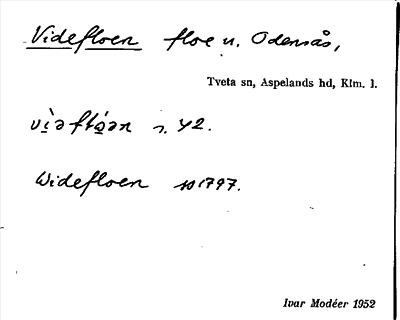 Videfloen floe u. Odensås,
Tveta sn, Aspelands hd, Klm. l.
Widefloen 1797.
Ivar Modéer 1952